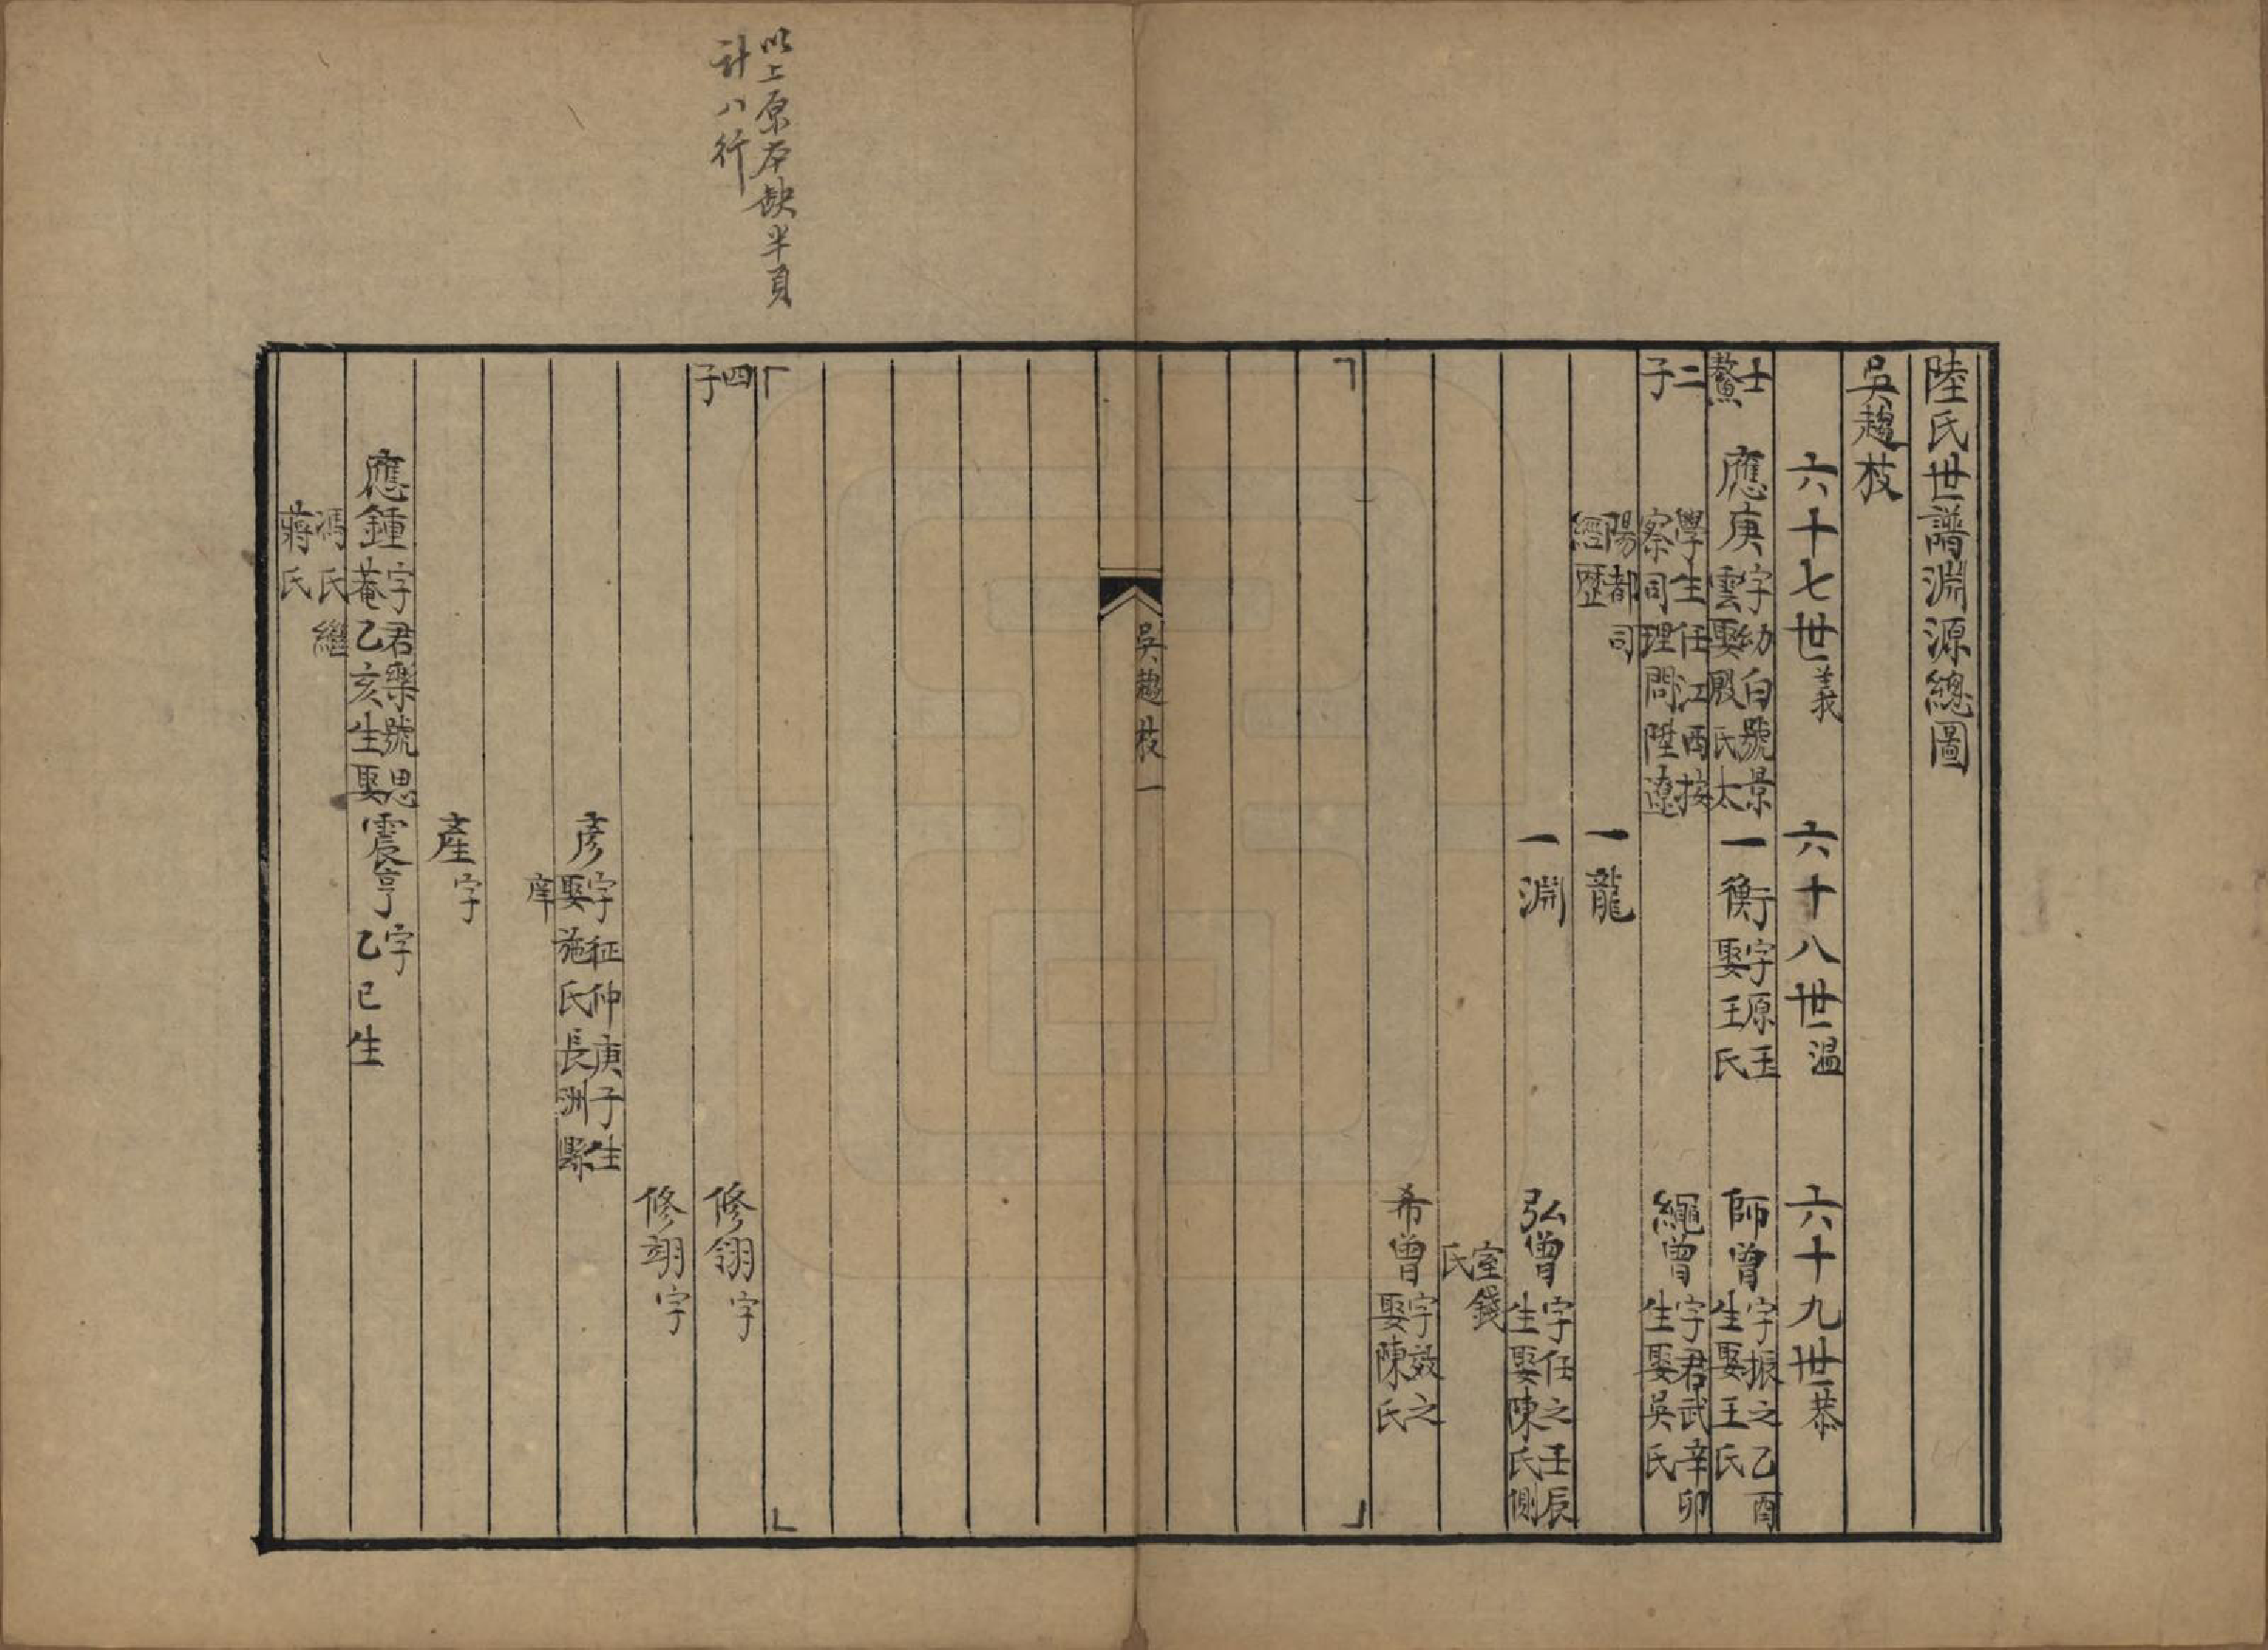 陸氏世譜淵源總圖
吳趨枝
六十七世義　六十八世温　六十九世恭
士鰲　應庚字幼白號景雲娶殷氏太　一衡字原玉娶王氏　師曾字振之乙酉生娶王氏
二子　學生任江西按察司理問陞遼　繩曾字君武辛卯生娶吳氏
陽都司經歷　一龍
一淵　弘曾字任之壬辰生娶陳氏側
室錢氏
希曾字效之娶陳氏
吳趨枝一
以上原本缺半頁
計八行
四子　修翎字
修翊字
彥字征仲庚子生娶施氏長洲縣
庠
產字
應鍾字君樂號思菴乙亥生娶　震亨字乙巳生
馮氏繼蔣氏